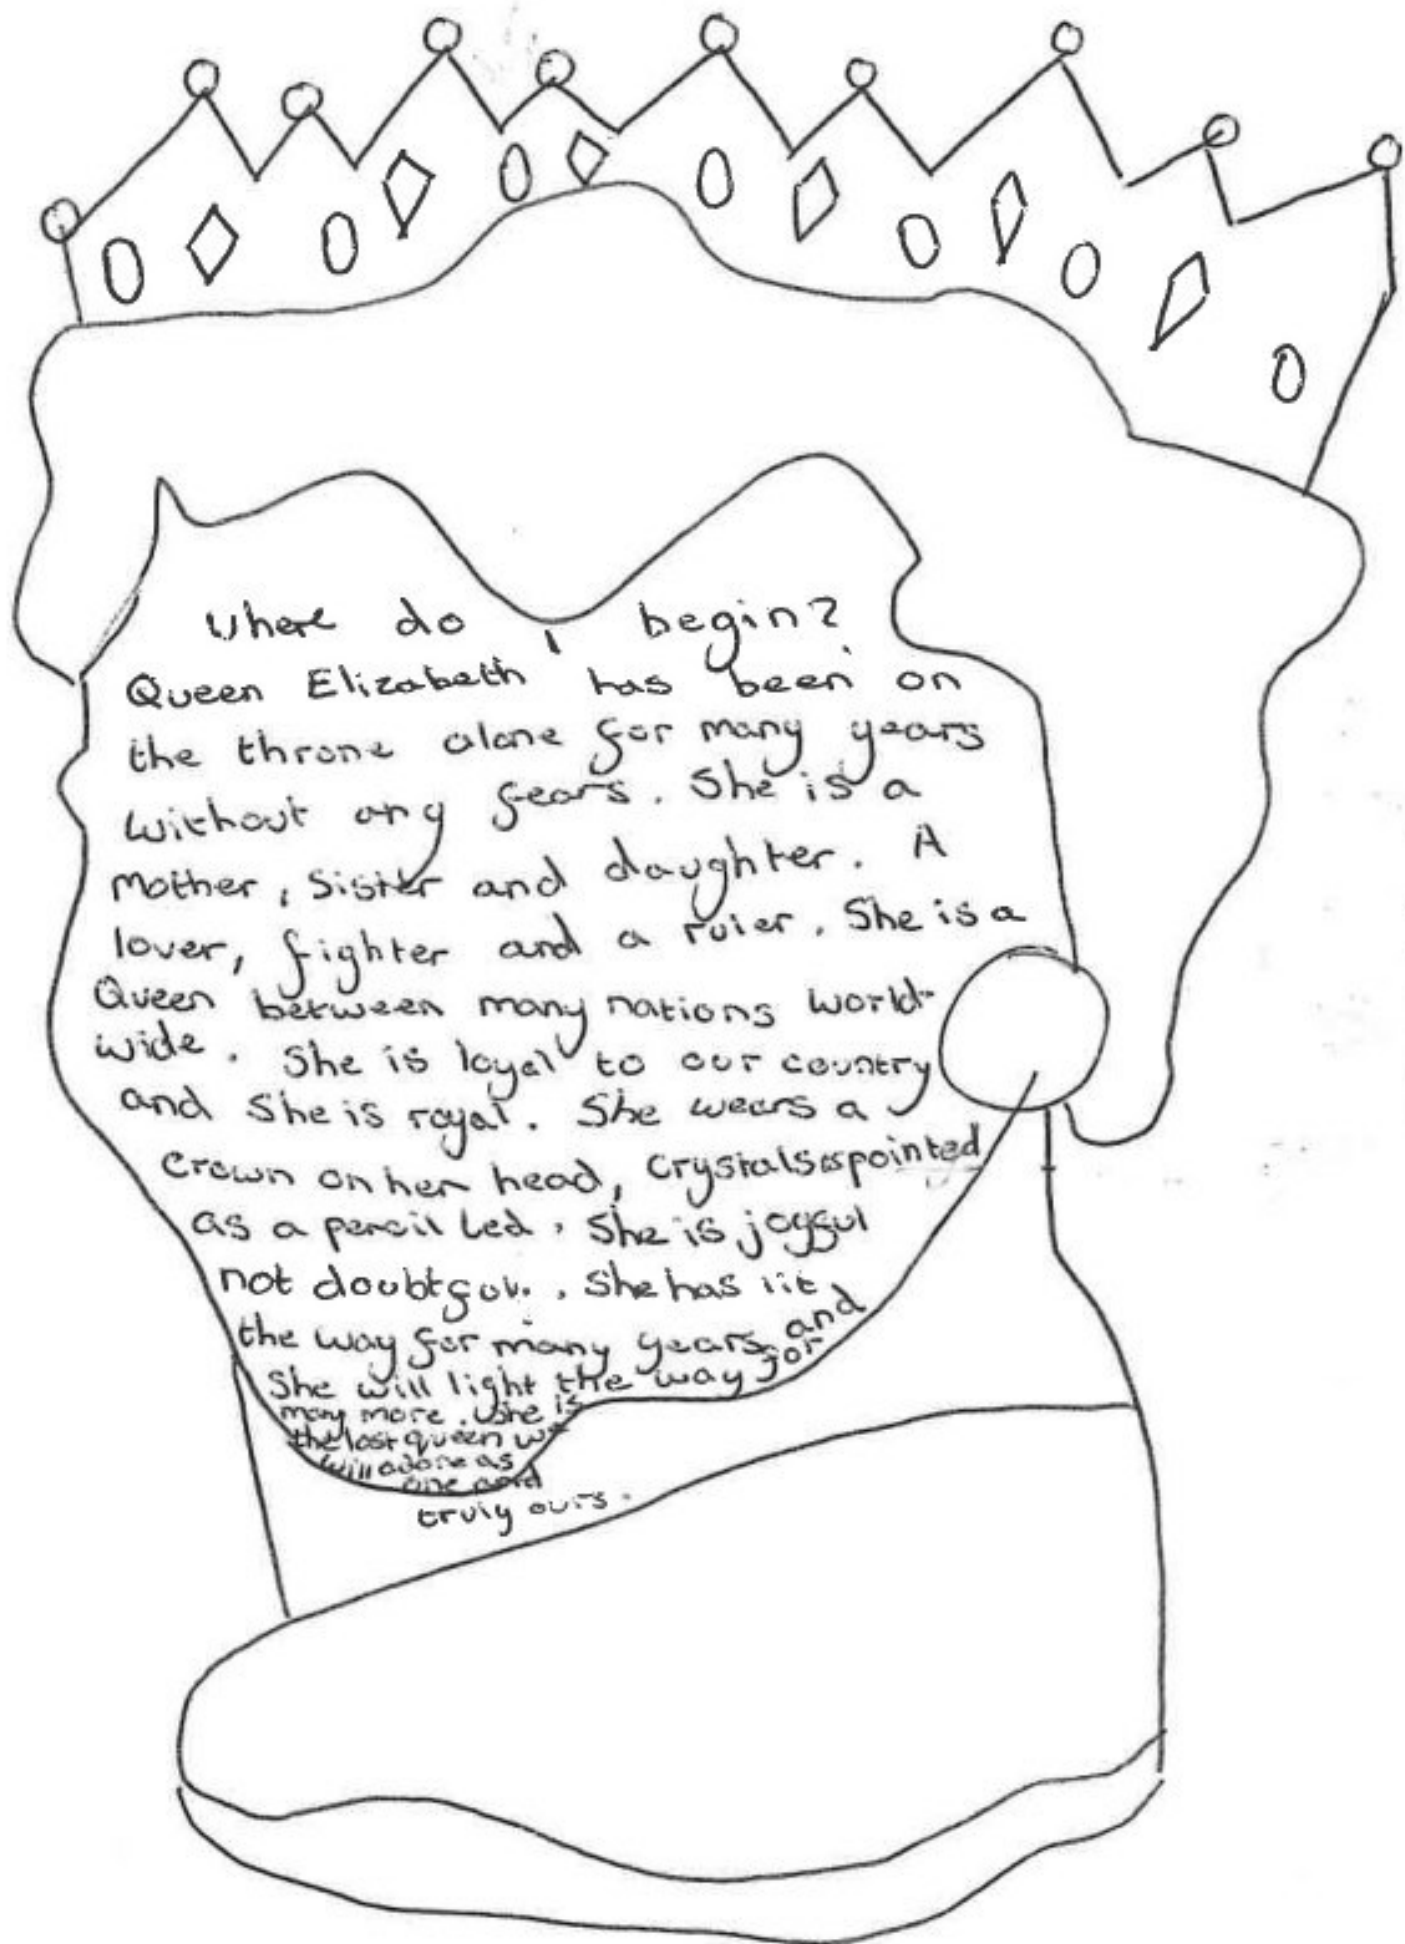 Where do I begin?
Queen Elizabeth has been on
the throne alone for many years
without any fears. She is a
Mother, Sister and daughter. A
lover, fighter and a ruler. She is a
Queen between many nations world-
wide. She is loyal to our country
and She is royal. She wears a
crown on her head, Crystals as pointed
as a pencil led. She is joyful
not doubtful. She has lit
the way for many years and
She will light the way for
many more. She is
the last queen we
will adore as
one and
truly ours.